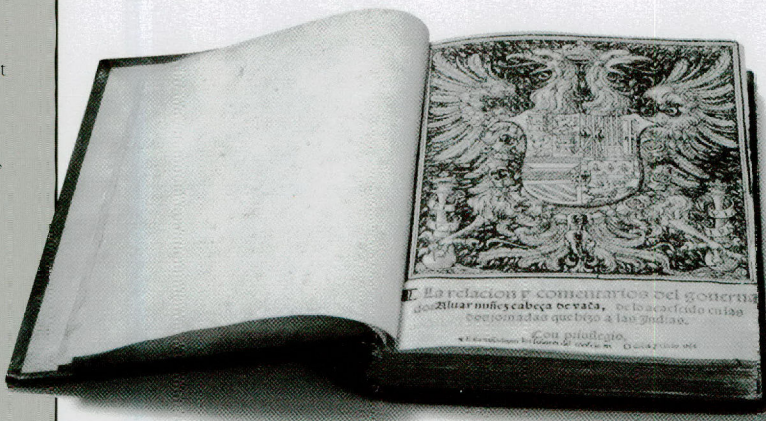 t
La relacion y comentarios del gouerna
dor Aluar nuñez cabeça de vaca, de lo acaescido en las
dos jornadas que hizo a las Indias.
Con priuilegio.